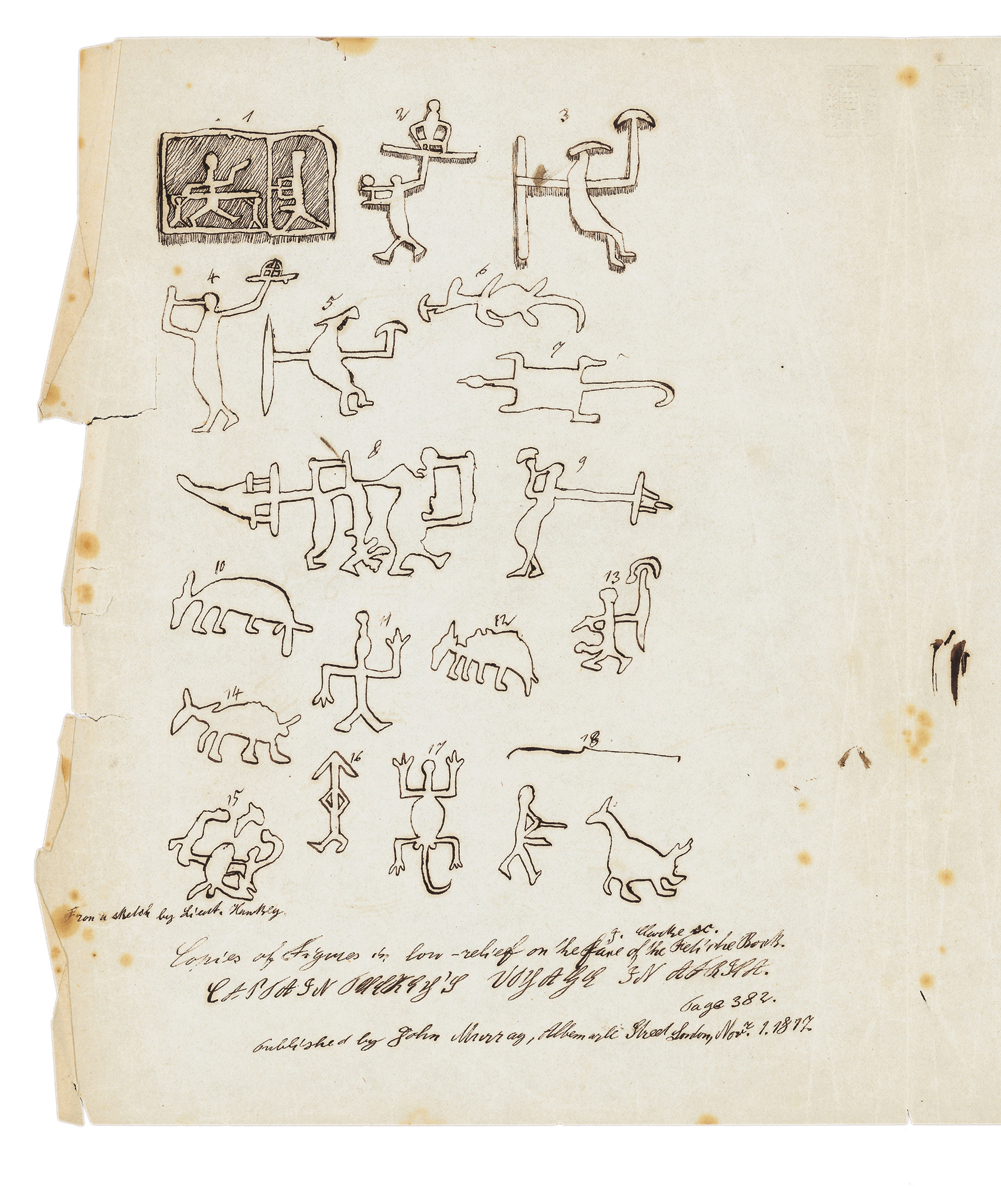 1 2 3
4 5 6
7
8 9
10 11 12 13
14
15 16 17 18
From a sketch by Lieut. Hawkey.
J. Clarke sc.
Copies of Figures in low-relief on the face of the Fetiche Rock.
CAPTAIN TUCKEY'S VOYAGE IN AFRICA.
Page 382.
Published by John Murray, Albemarle Street London, Nov. 1. 1817.